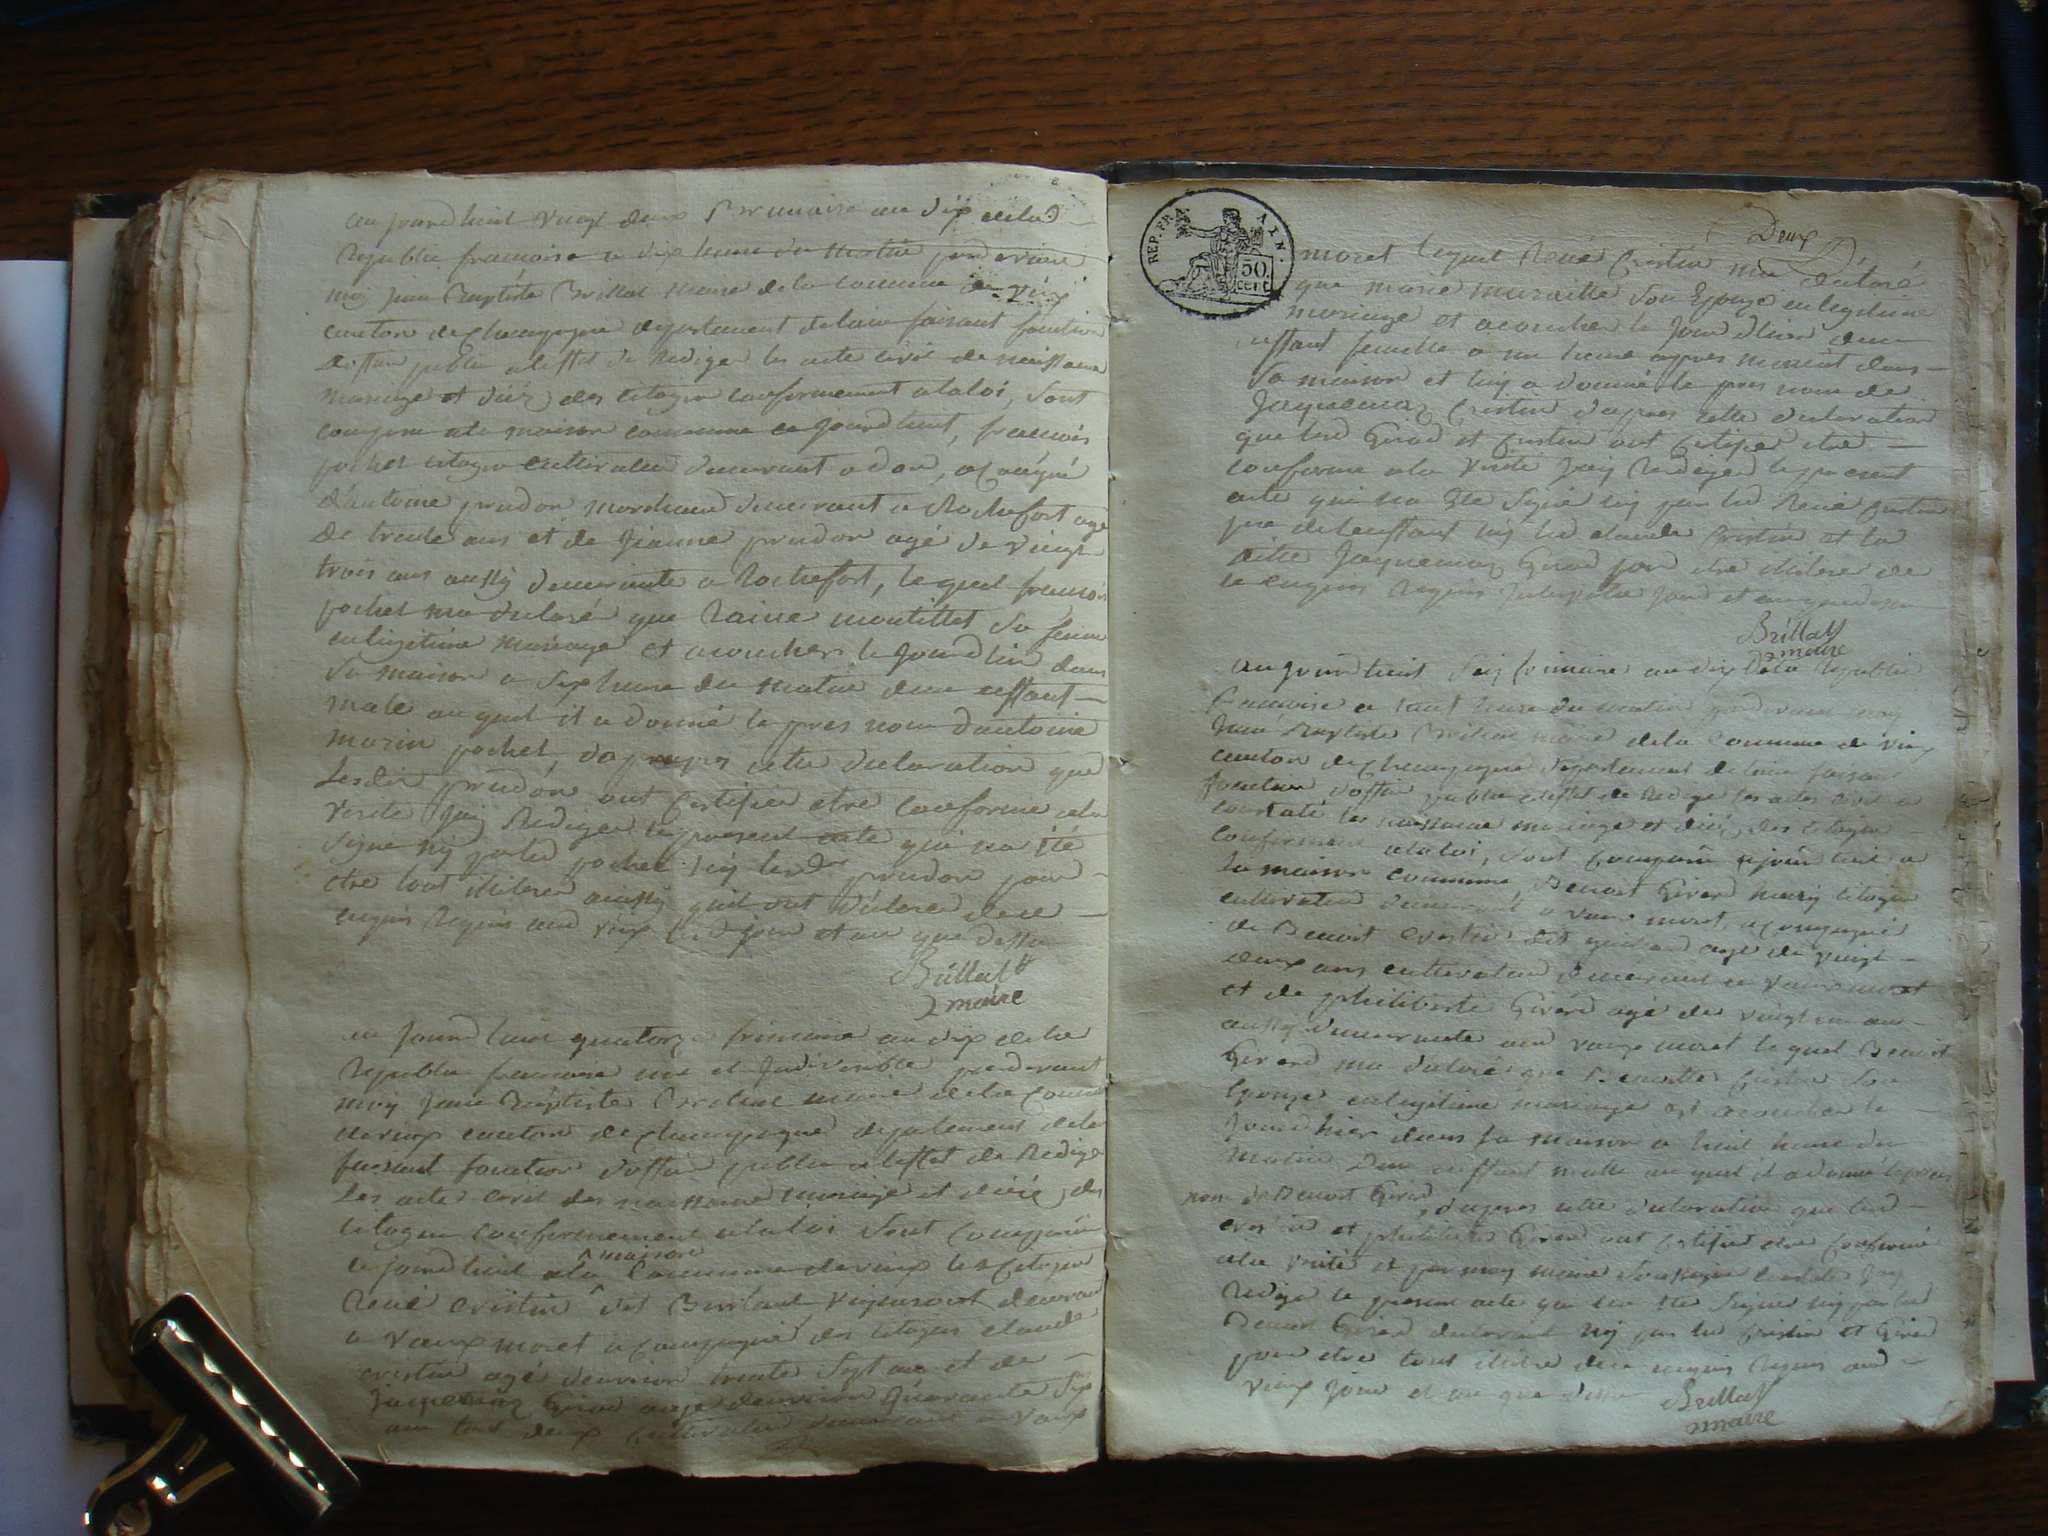 au jourdhuit vingt deux Brumaire an dix de la
Republic francaise a dix heure du matin pardevant
moy Jean Baptiste Brillat maire de la commune de vieux
canton de champagne departement de lain faisant fonction
dofficier public a leffet de Rediger les acte civil de naissance
mariage et décé des citoyen conformement a la loi, sont
comparu a la maison commune ce jourdhuit, francois
pochet citoyen cultivateur demeurant a don, acompagné
dantoine prudon marchand demeurant a Rochefort agé
de trente ans et de Jeanne prudon agé de vingt
trois ans aussy demeurante a Rochefort, le quel francois
pochet ma declaré que Raine montillet sa femme
en legitime mariage et acoucher le jourdhier dans
sa maison a six heure du matin dun enffant
male au quel il a donné le pres nom dantoine
marin pochet, dapres cette declaration que
lesdit prudon ont certifier etre conforme a la
verité jay Rediger le present acte qui na été
signe ny par led pochet ny led prudon pour
etre tout iliterer aussy quil ont déclarer de ce
enquis Requis aud vieux led jour et an que dessu
Brillat
maire
au jourdhuit quatorze frimaire an dix de la
Republic francaise une et Indivisible pardevant
moy Jean Baptiste Brillat maire de la commune
de vieux canton de champagne departement de lain
faisant fonction dofficier public a leffet de Rediger
les acte civil des naissance mariage et décé, des
citoyen conformement a la loi sont comparu
ce jourdhuit a la maison Commune de vieux les citoyen
René cristin dit demeurant
a Vaux moret acompagné des citoyen claude
cristin agé denviron trente sept ans et de
Jaquemaz Girod agé denviron quarante six
ans tous deux cultivateur demeurant a Vaux
REP. FRA.
50.
cent.
Deux
moret lequel René Cristin ma déclaré
que marie muraille son Epouze en legitime
mariage et acoucher le jour dhier dun
enffant femelle a une heure apres minuit dans
sa maison et luy a donné le pres nom de
Jaquemaz Cristin dapres cette declaration
que led Girod et Cristin ont certifier etre
conforme a la verité jay Rediger le present
acte qui na ete signé ny par led René Cristin
pere de lenffant ny led claude Cristin et la
ditte Jaquemaz Girod pour etre iliterer de
ce enquis Requis jour et an que dessu
Brillat
maire
au jourdhuit seize frimaire an dix de la Republic
francaise a huit heure du matin pardevant moy
Jean Baptiste Brillat maire de la Commune de vieux
canton de champagne departement de lain faisant
fonction doffier public a leffet de Rediger les actes civil a
constaté les naissance mariage et décé, des citoyen
conformement a la loi, sont comparu ce jourdhuit a
la maison commune, Benoit Girard citoyen
cultivateur demeurant a vaux moret, acompagné
de Benoit Cristin dit agé de vingt
deux ans cultivateur demeurant a vaux moret
et de philiberte Girard agé de vingt un ans
aussy demeurante aud vaux moret le quel Benoit
Girard ma declaré que Benoitte Cristin son
Epouze en legitime mariage est acoucher le
jourdhier dans sa maison a huit heure du
matin dun enffant malle au quel il a donné le pres
nom de Benoit Girard, dapres cette declaration que led
cristin et philiberte Girard ont certifier etre conforme
a la verité et par moy maire soussigné constaté jay
Rediger le present acte qui na ete signer ny par led
Benoit Girard declarant ny par led Cristin et Girard
pour etre tout iliterer de ce enquis Requis aud
vieux jour et an que dessu
Brillat
maire